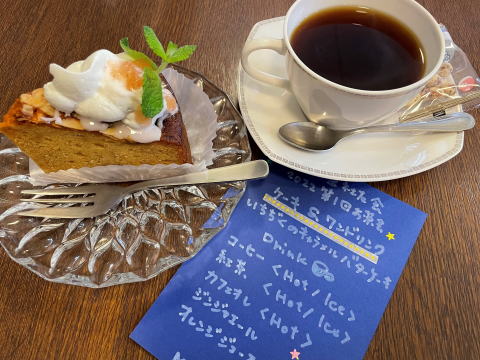 2022 第1回お茶会
ケーキ & ワンドリンク
いちじくのキャラメルバターケーキ
Drink
コーヒー <Hot / Ice>
紅茶 <Hot / Ice>
カフェオレ <Hot>
ジンジャエール
オレンジジュース